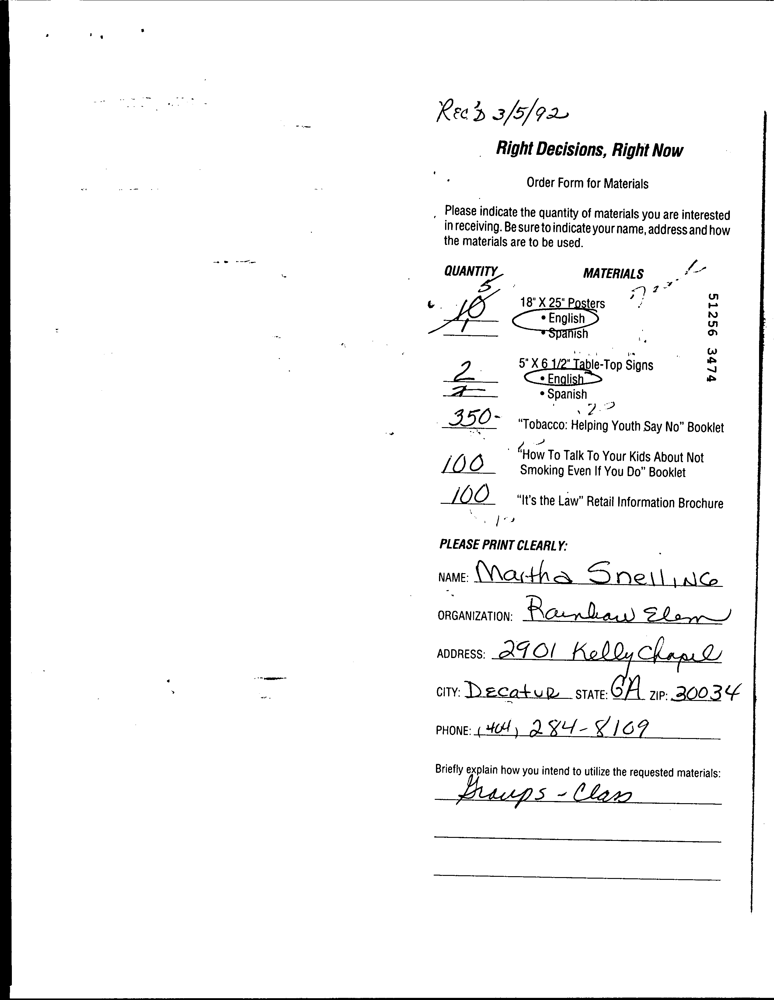 Rec'd 3/5/92
Right Decisions, Right Now
Order Form for Materials
Please indicate the quantity of materials you are interested
in receiving. Be sure to indicate your name, address and how
the materials are to be used.
QUANTITY MATERIALS
5
10 18" X 25" Posters
• English
• Spanish
5" X 6 1/2" Table-Top Signs
2 • English
• Spanish
350- "Tobacco: Helping Youth Say No" Booklet
100 "How To Talk To Your Kids About Not
Smoking Even If You Do" Booklet
100 "It's the Law" Retail Information Brochure
PLEASE PRINT CLEARLY:
NAME: Martha Snelling
ORGANIZATION: Rainbow Elem
ADDRESS: 2901 Kelly Chapel
CITY: Decatur STATE: GA ZIP: 30034
PHONE: (404) 284-8109
Briefly explain how you intend to utilize the requested materials:
Groups - Class
51256 3474